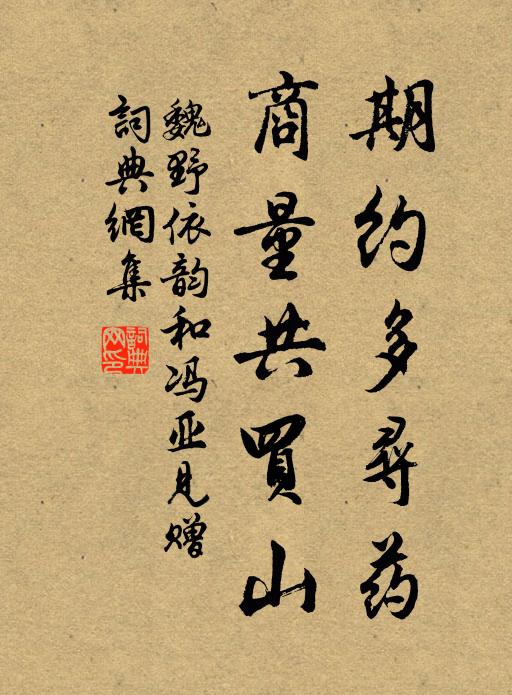 期约多尋药
商量共買山
魏野依韵和冯亚见赠
詞典網集
詞典网印